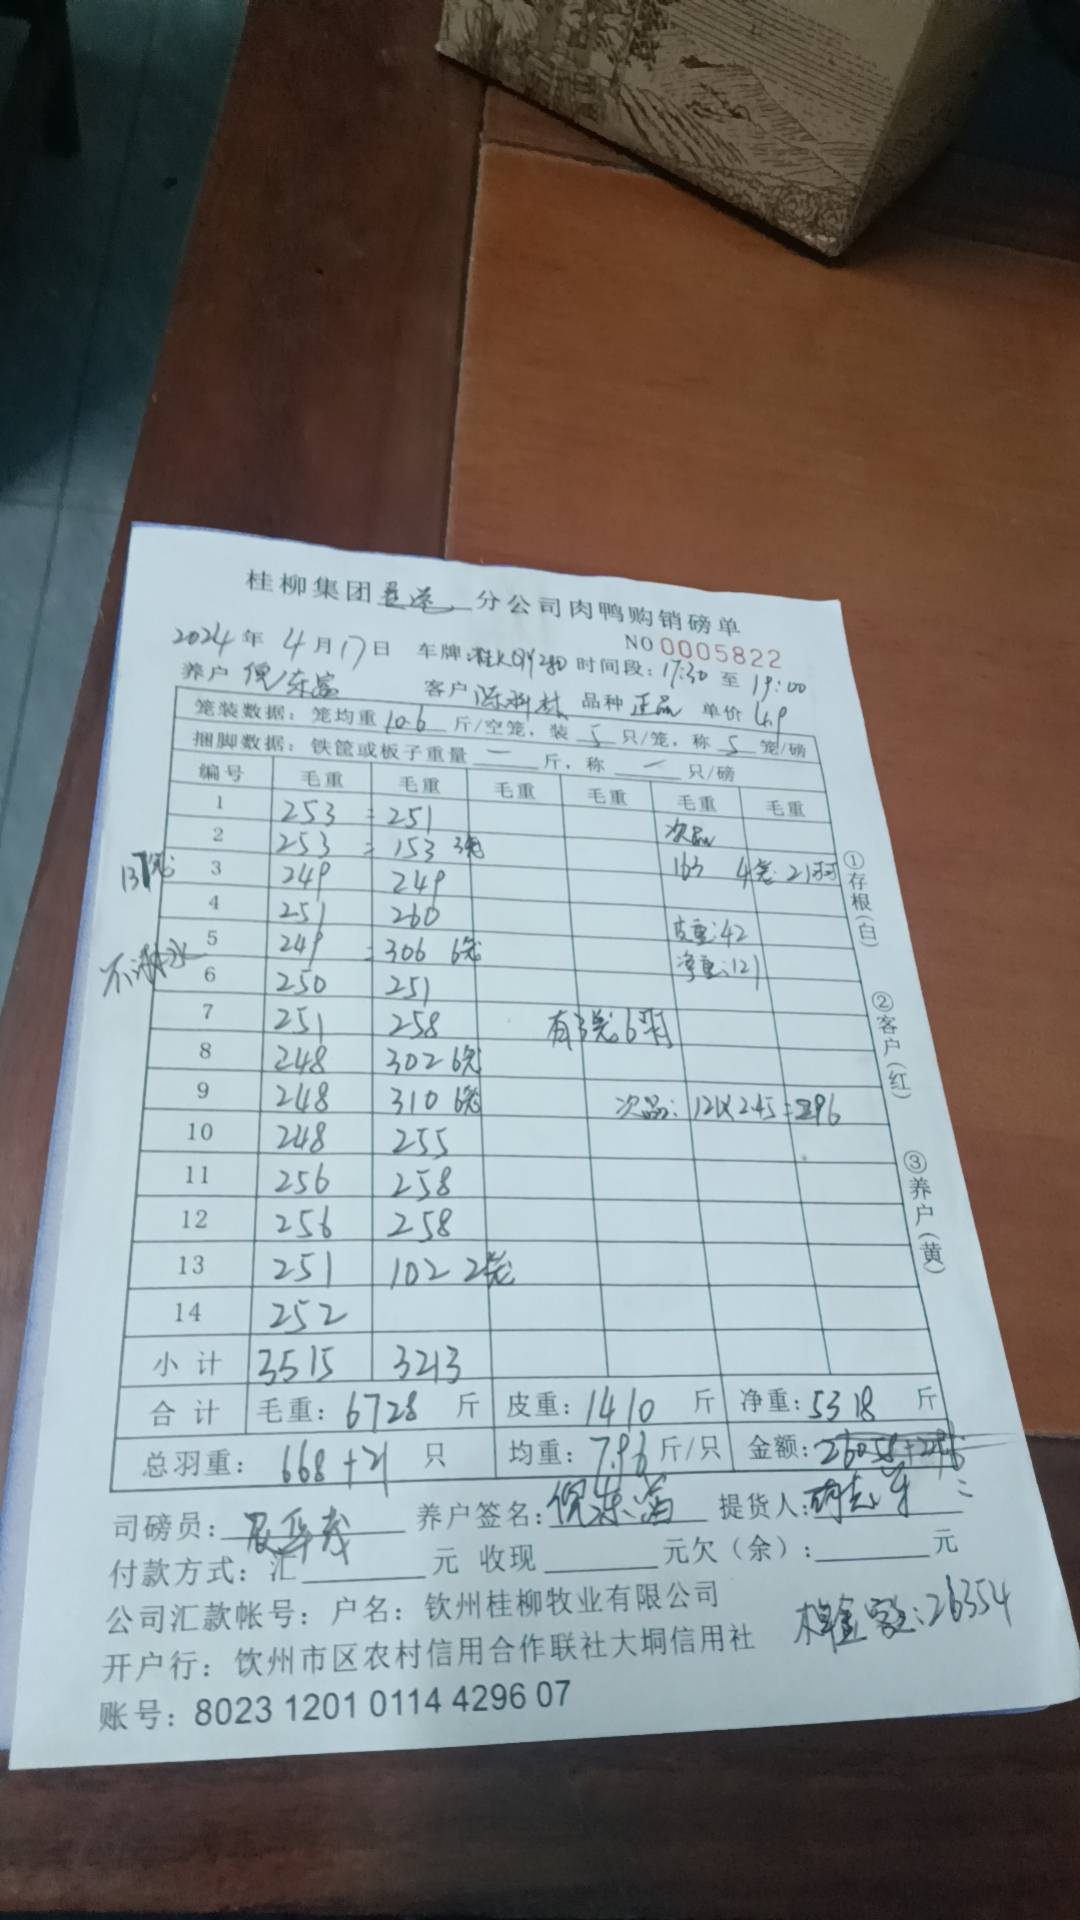 桂柳集团 分公司肉鸭购销磅单
NO 0005822
2024年 4月17日 车牌: 时间段: 17:30 至 19:00
养户 倪东富 客户 陈 林 品种 正品 单价 4.9
笼装数据: 笼均重 10.6 斤/空笼, 装 5 只/笼, 称 5 笼/磅
捆脚数据: 铁筐或板子重量 一 斤, 称 一 只/磅
编号 毛重 毛重 毛重 毛重 毛重 毛重
1 253 251 次品
2 253 153 3笼 163 4笼 21只
3 249 249
4 251 260 皮重:42
5 249 306 6笼 净重:121
6 250 251
7 251 258 有3笼6只
8 248 302 6笼
9 248 310 6笼 次品: 121×2.45=296
10 248 255
11 256 258
12 256 258
13 251 102 2笼
14 252
小计 3515 3213
合计 毛重: 6728 斤 皮重: 1410 斤 净重: 5318 斤
总羽重: 668+21 只 均重: 7.96 斤/只 金额: 26058+296
司磅员: 养户签名: 倪东富 提货人:
付款方式: 汇 元 收现 元欠(余): 元
公司汇款帐号: 户名: 钦州桂柳牧业有限公司
26354
开户行: 钦州市区农村信用合作联社大垌信用社
账号: 8023 1201 0114 4296 07
137笼
①存根(白)
②客户(红)
③养户(黄)